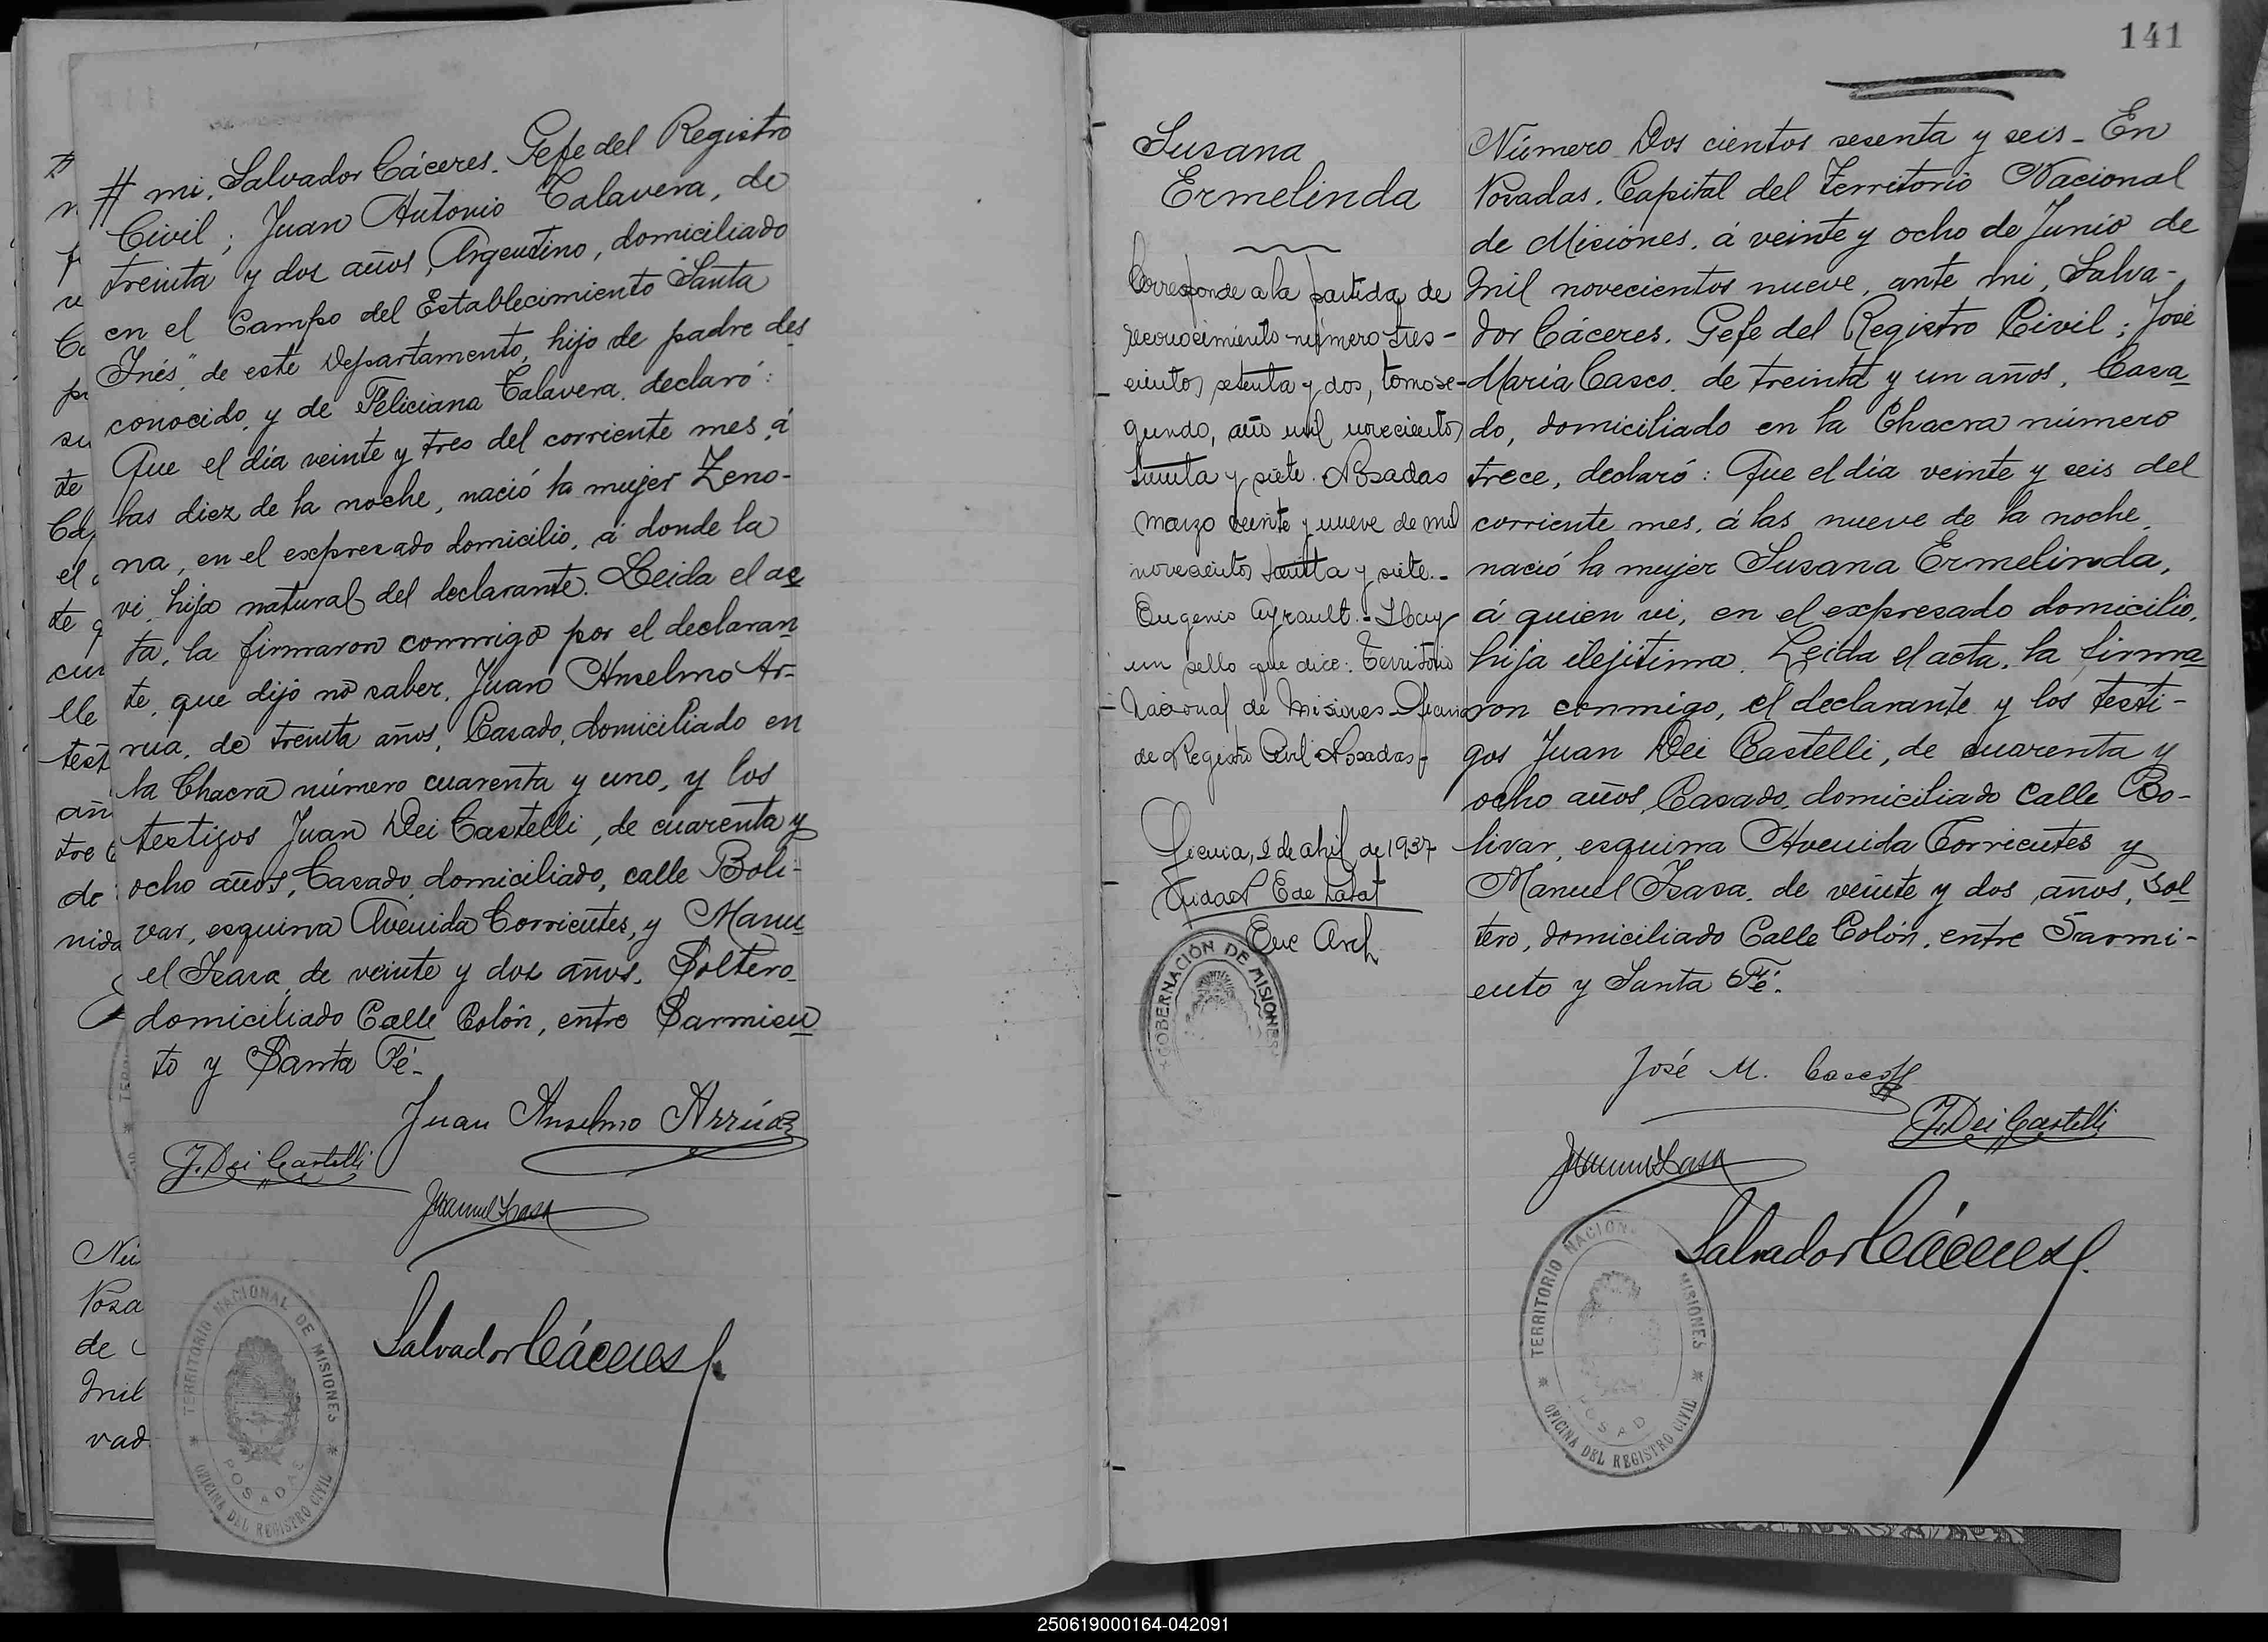 # mi, Salvador Cáceres. Gefe del Registro
Civil; Juan Antonio Talavera, de
treinta y dos años, Argentino, domiciliado
en el Campo del Establecimiento "Santa
Inés" de este Departamento, hijo de padre des
conocido, y de Feliciana Talavera, declaró:
Que el día veinte y tres del corriente mes, á
las diez de la noche, nació la mujer Zeno-
na, en el expresado domicilio, á donde la
vi, hija natural del declarante. Leida el ac
ta, la firmaron conmigo por el declaran
te, que dijo no saber, Juan Anselmo Ar-
rúa, de treinta años, Casado, domiciliado en
la Chacra número cuarenta y uno, y los
testigos Juan Dei Castelli, de cuarenta y
ocho años, Casado, domiciliado, calle Boli-
var, esquina Avenida Corrientes, y Manu
el Isasa, de veinte y dos años, Soltero,
domiciliado Calle Colón, entre Sarmien
to y Santa Fé.-
Juan Anselmo Arrúa
J. Dei Castelli
Manuel Isasa
Salvador Cáceres
TERRITORIO NACIONAL DE MISIONES
POSADAS
OFICINA DEL REGISTRO CIVIL
Nú
Posa
de
Mil
vad
141
Susana
Ermelinda
Corresponde a la partida de
reconocimiento número tres-
cientos setenta y dos, tomo se-
gundo, año mil novecientos
treinta y siete. Posadas
marzo veinte y nueve de mil
novecientos treinta y siete.-
Eugenio Ayrault.- Hay
un sello que dice: Territorio
Nacional de Misiones-Oficina
de Registro Civil Posadas-
2 de abril de 1937
Enc Arch
GOBERNACIÓN DE MISIONES
Número Dos cientos sesenta y seis- En
Posadas, Capital del Territorio Nacional
de Misiones, á veinte y ocho de Junio de
Mil novecientos nueve, ante mi, Salva-
dor Cáceres. Gefe del Registro Civil; José
María Casco, de treinta y un años, Casa
do, domiciliado en la Chacra número
trece, declaró: Que el día veinte y seis del
corriente mes, á las nueve de la noche,
nació la mujer Susana Ermelinda,
á quien vi, en el expresado domicilio,
hija ilejitima. Leida el acta, la firma
ron conmigo, el declarante y los testi-
gos Juan Dei Castelli, de cuarenta y
ocho años, Casado, domiciliado Calle Bo-
livar, esquina Avenida Corrientes y
Manuel Isasa, de veinte y dos años, Sol
tero, domiciliado Calle Colón, entre Sarmi-
ento y Santa Fé.
José M. Casco
J. Dei Castelli
Manuel Isasa
Salvador Cáceres
TERRITORIO NACION MISIONES
POSAD
OFICINA DEL REGISTRO CIVIL
250619000164-042091